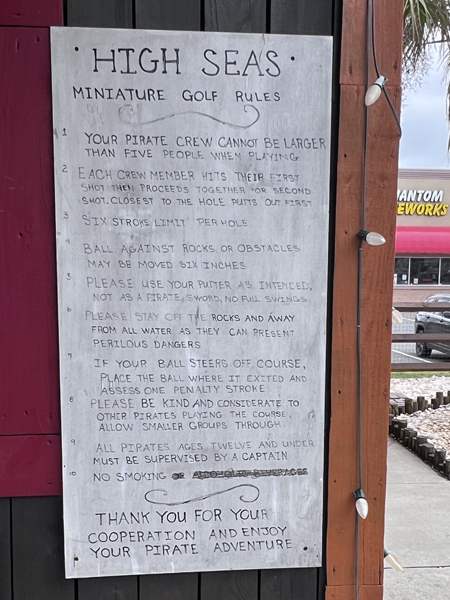 · HIGH SEAS ·
MINIATURE GOLF RULES
1 YOUR PIRATE CREW CANNOT BE LARGER
THAN FIVE PEOPLE WHEN PLAYING
2 EACH CREW MEMBER HITS THEIR FIRST
SHOT THEN PROCEEDS TOGETHER FOR SECOND
SHOT. CLOSEST TO THE HOLE PUTTS OUT FIRST
3 SIX STROKE LIMIT PER HOLE
4 BALL AGAINST ROCKS OR OBSTACLES
MAY BE MOVED SIX INCHES
5 PLEASE USE YOUR PUTTER AS INTENDED,
NOT AS A PIRATE SWORD, NO FULL SWINGS
6 PLEASE STAY OFF THE ROCKS AND AWAY
FROM ALL WATER AS THEY CAN PRESENT
PERILOUS DANGERS
7 IF YOUR BALL STEERS OFF COURSE,
PLACE THE BALL WHERE IT EXITED AND
ASSESS ONE PENALTY STROKE
8 PLEASE BE KIND AND CONSIDERATE TO
OTHER PIRATES PLAYING THE COURSE,
ALLOW SMALLER GROUPS THROUGH
9 ALL PIRATES AGES TWELVE AND UNDER
MUST BE SUPERVISED BY A CAPTAIN
10 NO SMOKING OR ALCOHOLIC BEVERAGES
THANK YOU FOR YOUR
COOPERATION AND ENJOY
YOUR PIRATE ADVENTURE
ANTOM
EWORKS